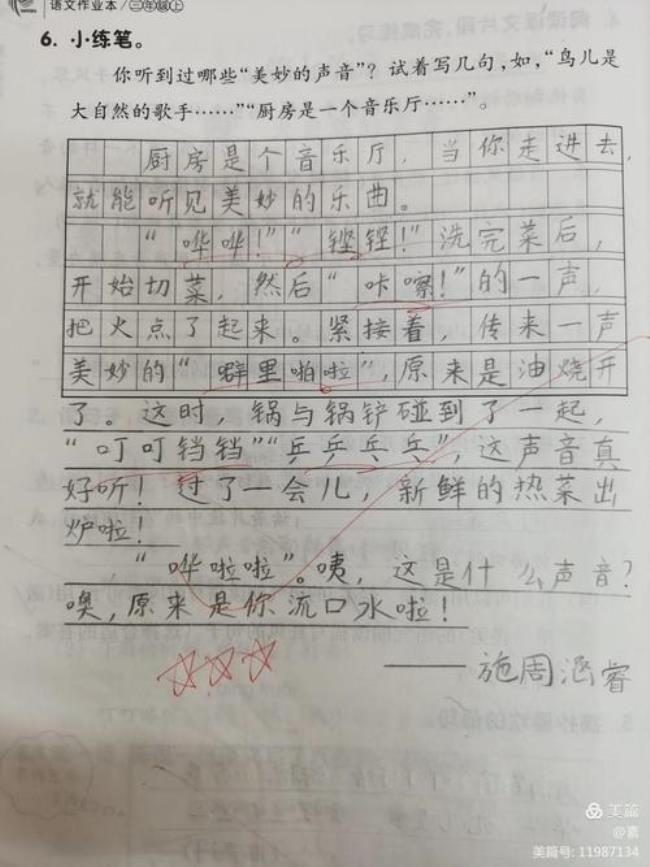 语文作业本/三年级上
6. 小练笔。
你听到过哪些“美妙的声音”？试着写几句，如，“鸟儿是
大自然的歌手……”“厨房是一个音乐厅……”。
厨房是个音乐厅，当你走进去，
就能听见美妙的乐曲。
“哗哗！”“铿铿！”洗完菜后，
开始切菜，然后“咔嚓！”的一声，
把火点了起来。紧接着，传来一声
美妙的“噼里啪啦”，原来是油烧开
了。这时，锅与锅铲碰到了一起，
“叮叮铛铛”“乒乒乓乓”，这声音真
好听！过了一会儿，新鲜的热菜出
炉啦！
“哗啦啦”。咦，这是什么声音？
噢，原来是你流口水啦！
——施周涵睿
美篇
@素
美篇号: 11987134